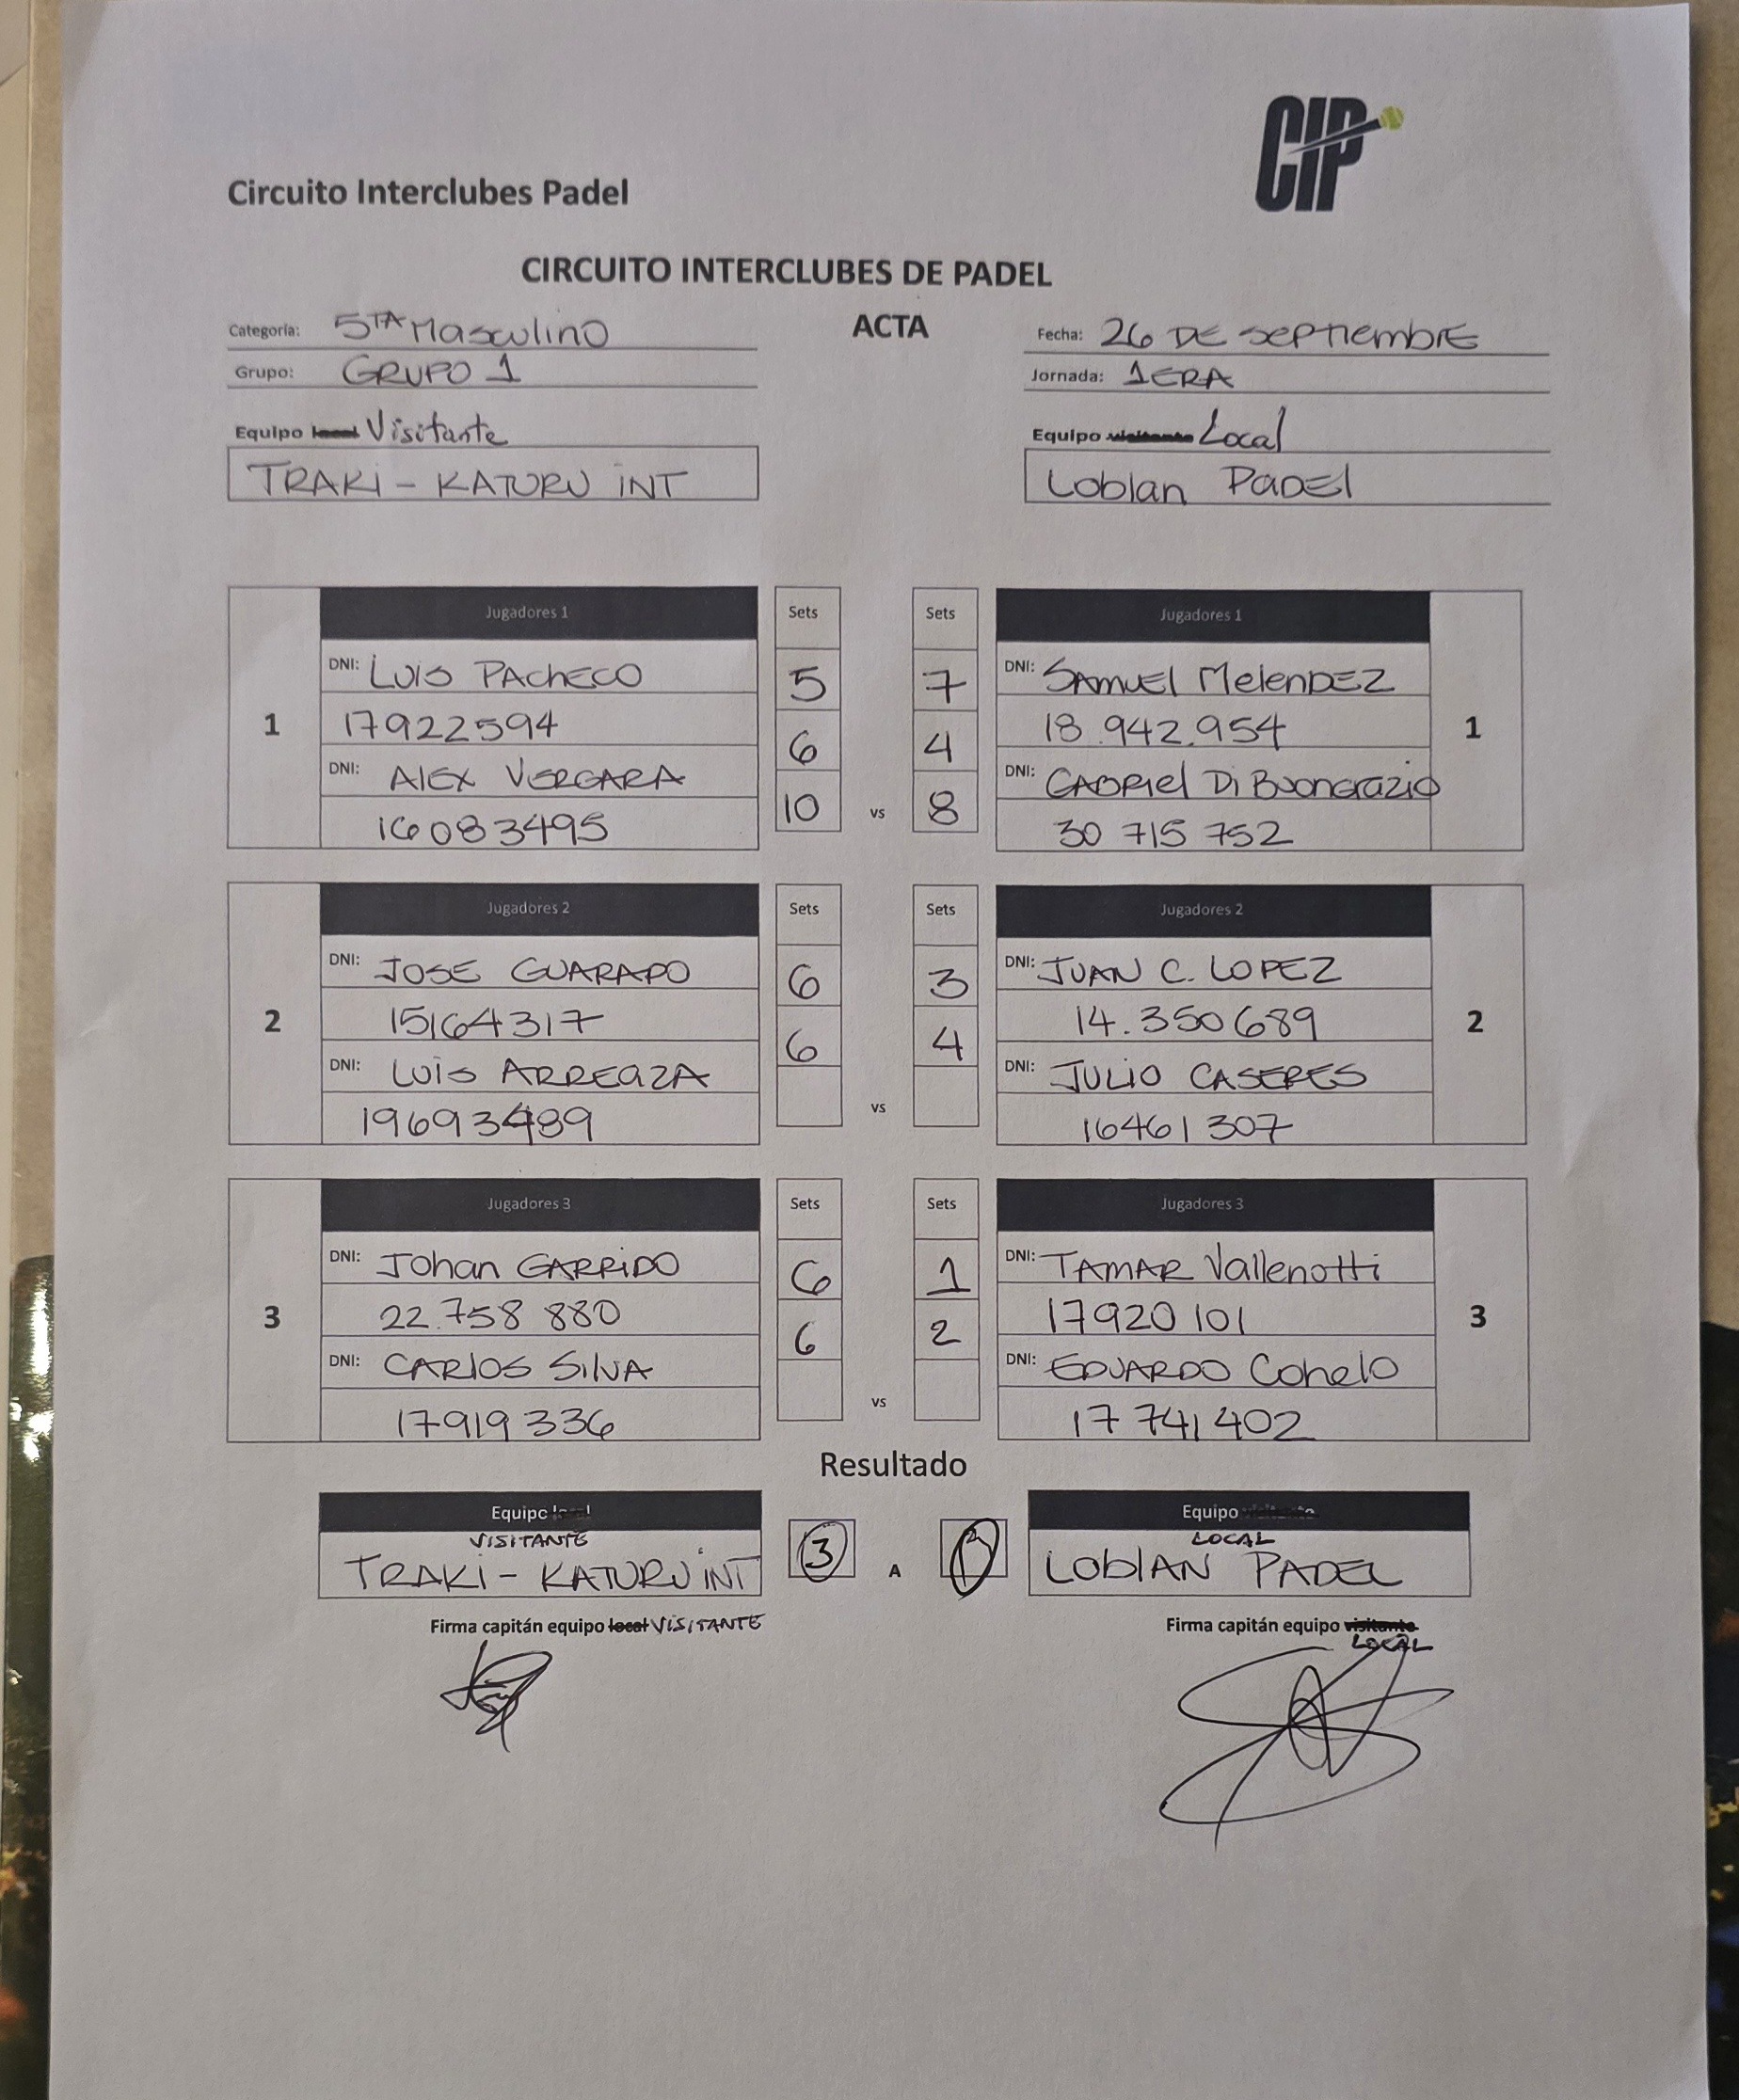 CIP
Circuito Interclubes Padel
CIRCUITO INTERCLUBES DE PADEL
ACTA
Categoría: 5TA Masculino
Grupo: GRUPO 1
Fecha: 26 DE SEPTIEMBRE
Jornada: 1ERA
Equipo local Visitante
TRAKI - KATURU INT
Equipo visitante Local
Loblan PADEL
1
Jugadores 1
DNI: LUIS PACHECO
17922594
DNI: ALEX VERGARA
16083495
Sets
5
6
10
vs
Sets
7
4
8
Jugadores 1
DNI: SAMUEL MELENDEZ
18.942.954
DNI: GABRIEL Di Buongrazio
30 715 752
1
2
Jugadores 2
DNI: JOSE GUARAPO
15164317
DNI: LUIS ARREAZA
19693489
Sets
6
6
vs
Sets
3
4
Jugadores 2
DNI: JUAN C. LOPEZ
14.350689
DNI: JULIO CASERES
16461307
2
3
Jugadores 3
DNI: Johan GARRIDO
22.758 880
DNI: CARLOS SILVA
17919336
Sets
6
6
vs
Sets
1
2
Jugadores 3
DNI: TAMAR Vallenotti
17920101
DNI: EDUARDO Cohelo
17741402
3
Resultado
Equipo local
VISITANTE
TRAKI - KATURU INT
3
A
Equipo visitante
LOCAL
LOBLAN PADEL
Firma capitán equipo local VISITANTE
Firma capitán equipo visitante
LOCAL